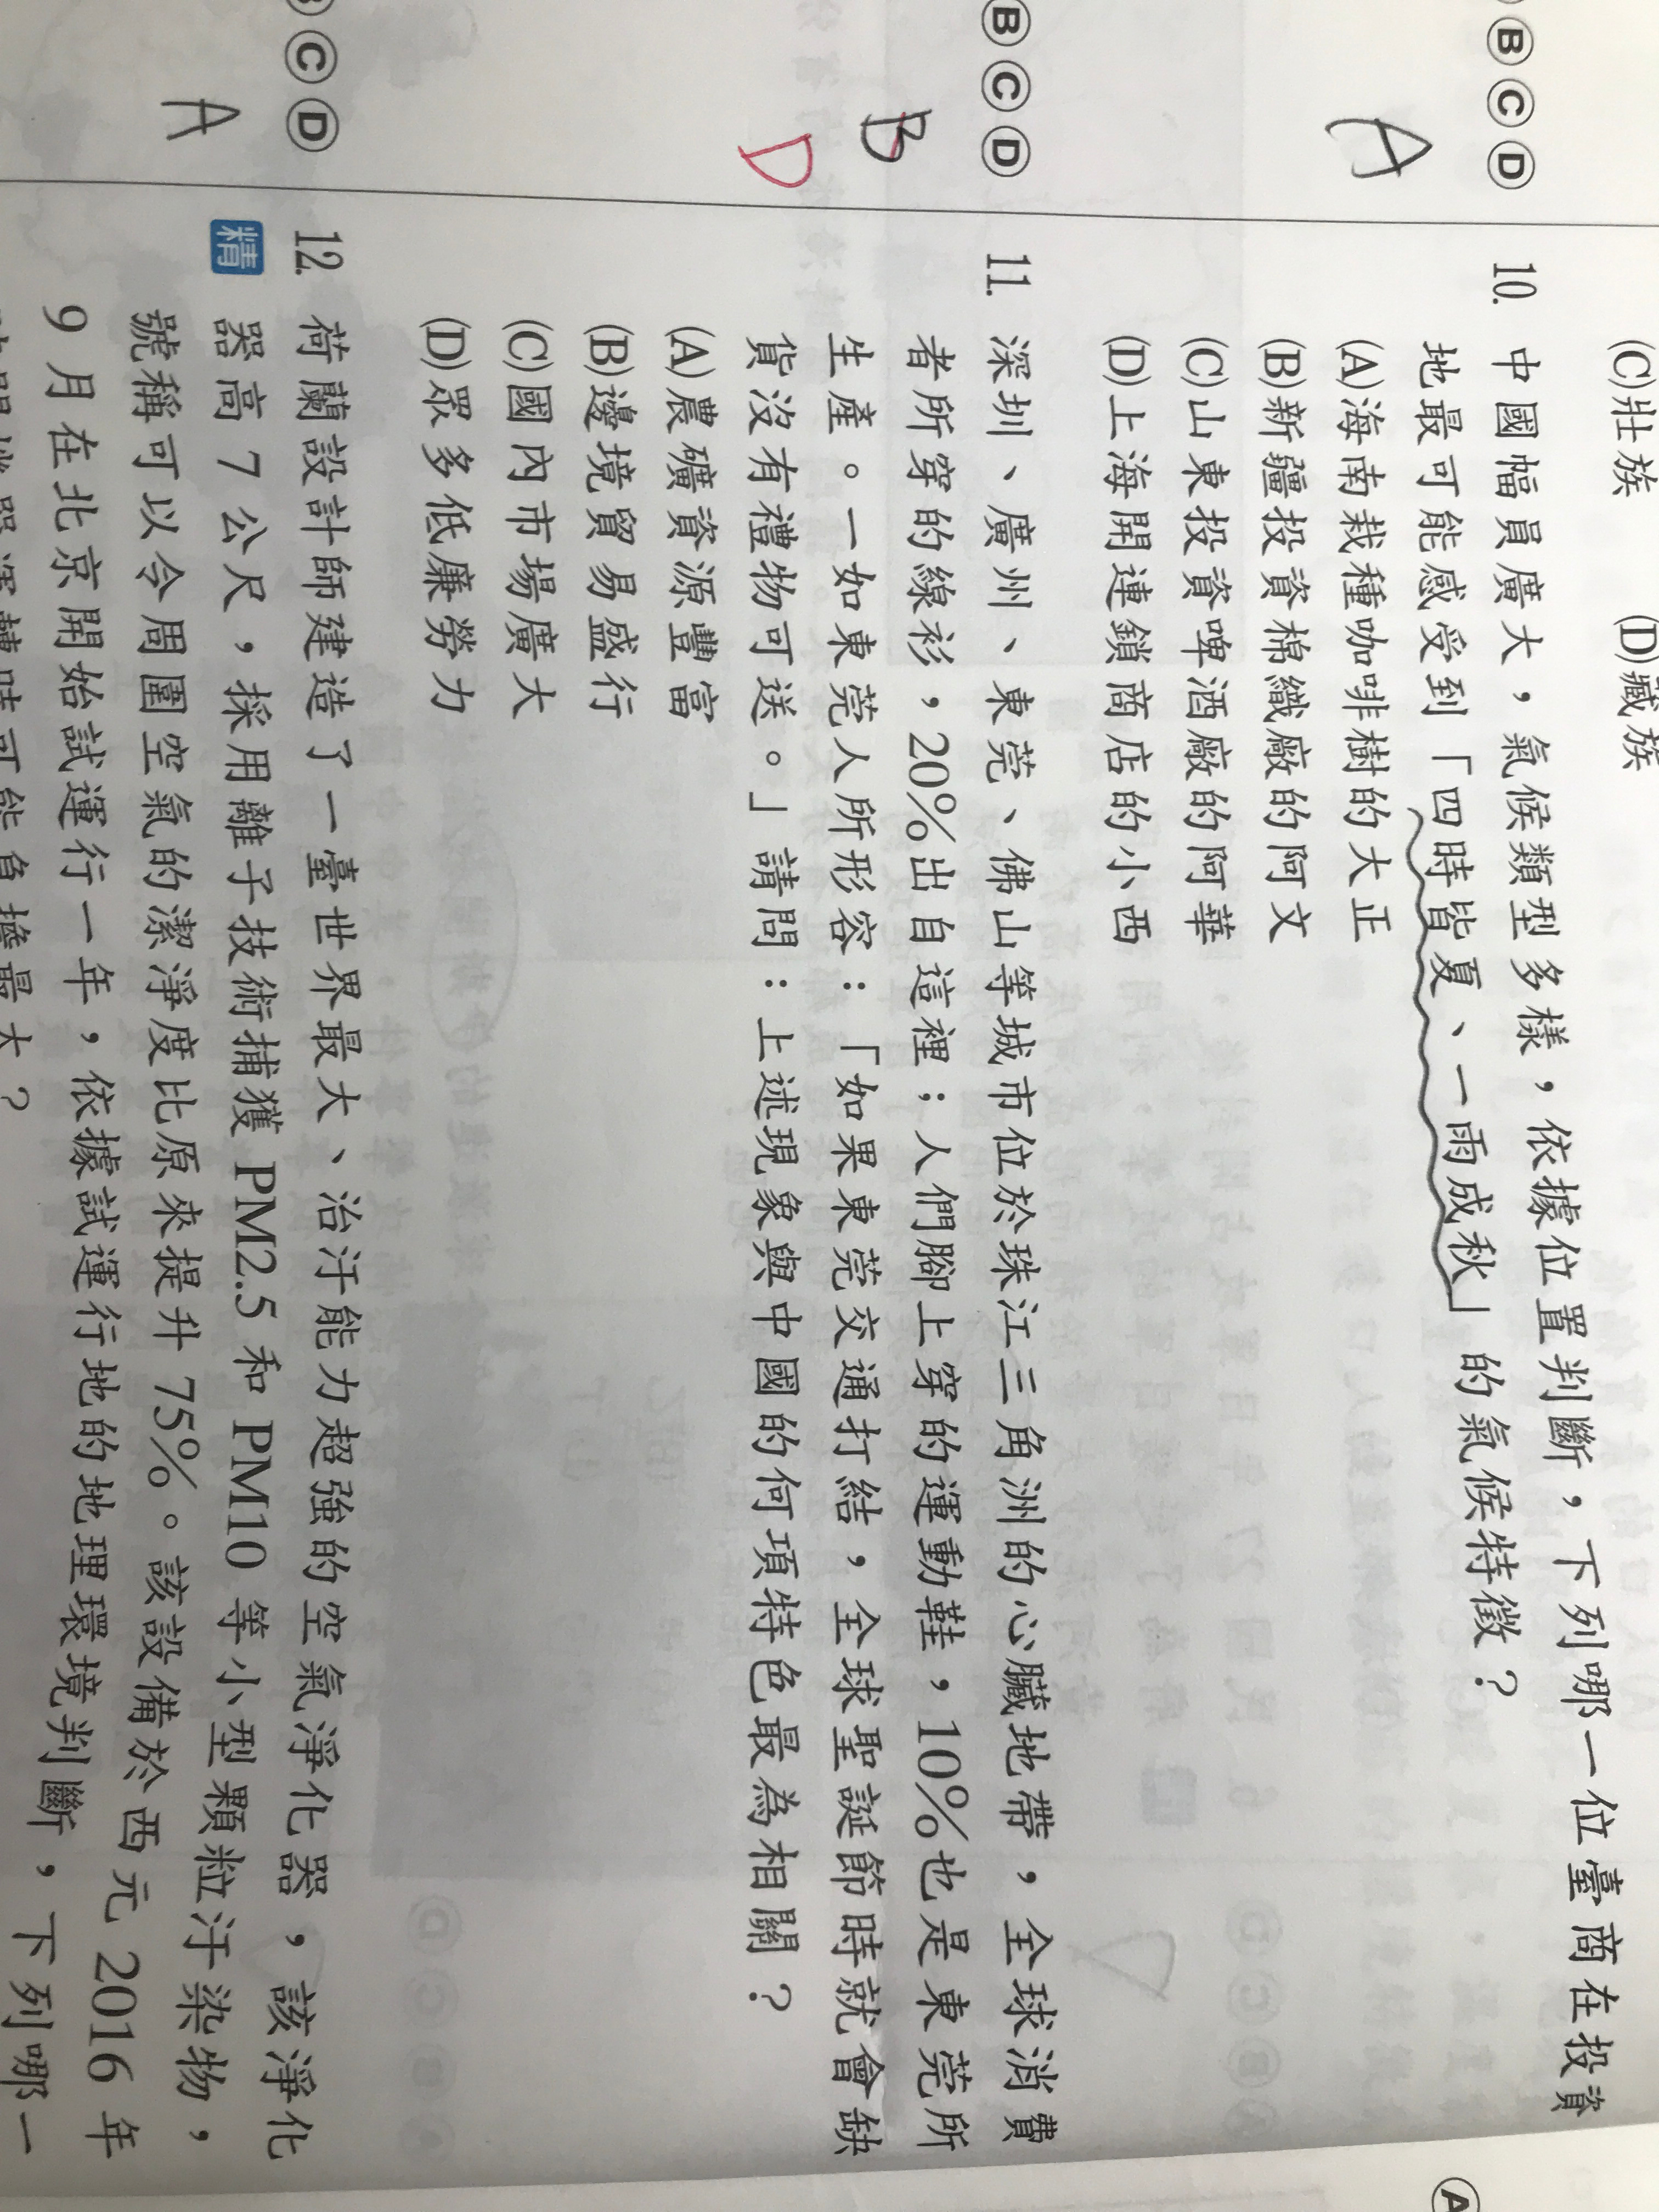 (C)壯族 (D)藏族
B C D
A
10. 中國幅員廣大，氣候類型多樣，依據位置判斷，下列哪一位臺商在投資
地最可能感受到「四時皆夏、一雨成秋」的氣候特徵？
(A)海南栽種咖啡樹的大正
(B)新疆投資棉織廠的阿文
(C)山東投資啤酒廠的阿華
(D)上海開連鎖商店的小西
B C D
B
D
11. 深圳、廣州、東莞、佛山等城市位於珠江三角洲的心臟地帶，全球消費
者所穿的線衫，20%出自這裡；人們腳上穿的運動鞋，10%也是東莞所
生產。一如東莞人所形容：「如果東莞交通打結，全球聖誕節時就會缺
貨沒有禮物可送。」請問：上述現象與中國的何項特色最為相關？
(A)農礦資源豐富
(B)邊境貿易盛行
(C)國內市場廣大
(D)眾多低廉勞力
C D
A
12. 荷蘭設計師建造了一臺世界最大、治汙能力超強的空氣淨化器，該淨化
精 器高 7 公尺，採用離子技術捕獲 PM2.5 和 PM10 等小型顆粒汙染物，
號稱可以令周圍空氣的潔淨度比原來提升 75%。該設備於西元 2016 年
9 月在北京開始試運行一年，依據試運行地的地理環境判斷，下列哪一
A